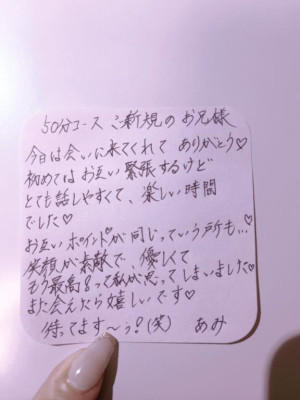 50分コース ご新規のお兄様
今日は会いに来てくれてありがとう♡
初めてはお互い緊張するけど
とても話しやすくて、楽しい時間
でした♡
お互いポイントが同じっていう所も…♡
笑顔が素敵で、優しくて
もう最高!って私が思ってしまいました♡
また会えたら嬉しいです♡
待ってます〜ぅ?(笑) あみ